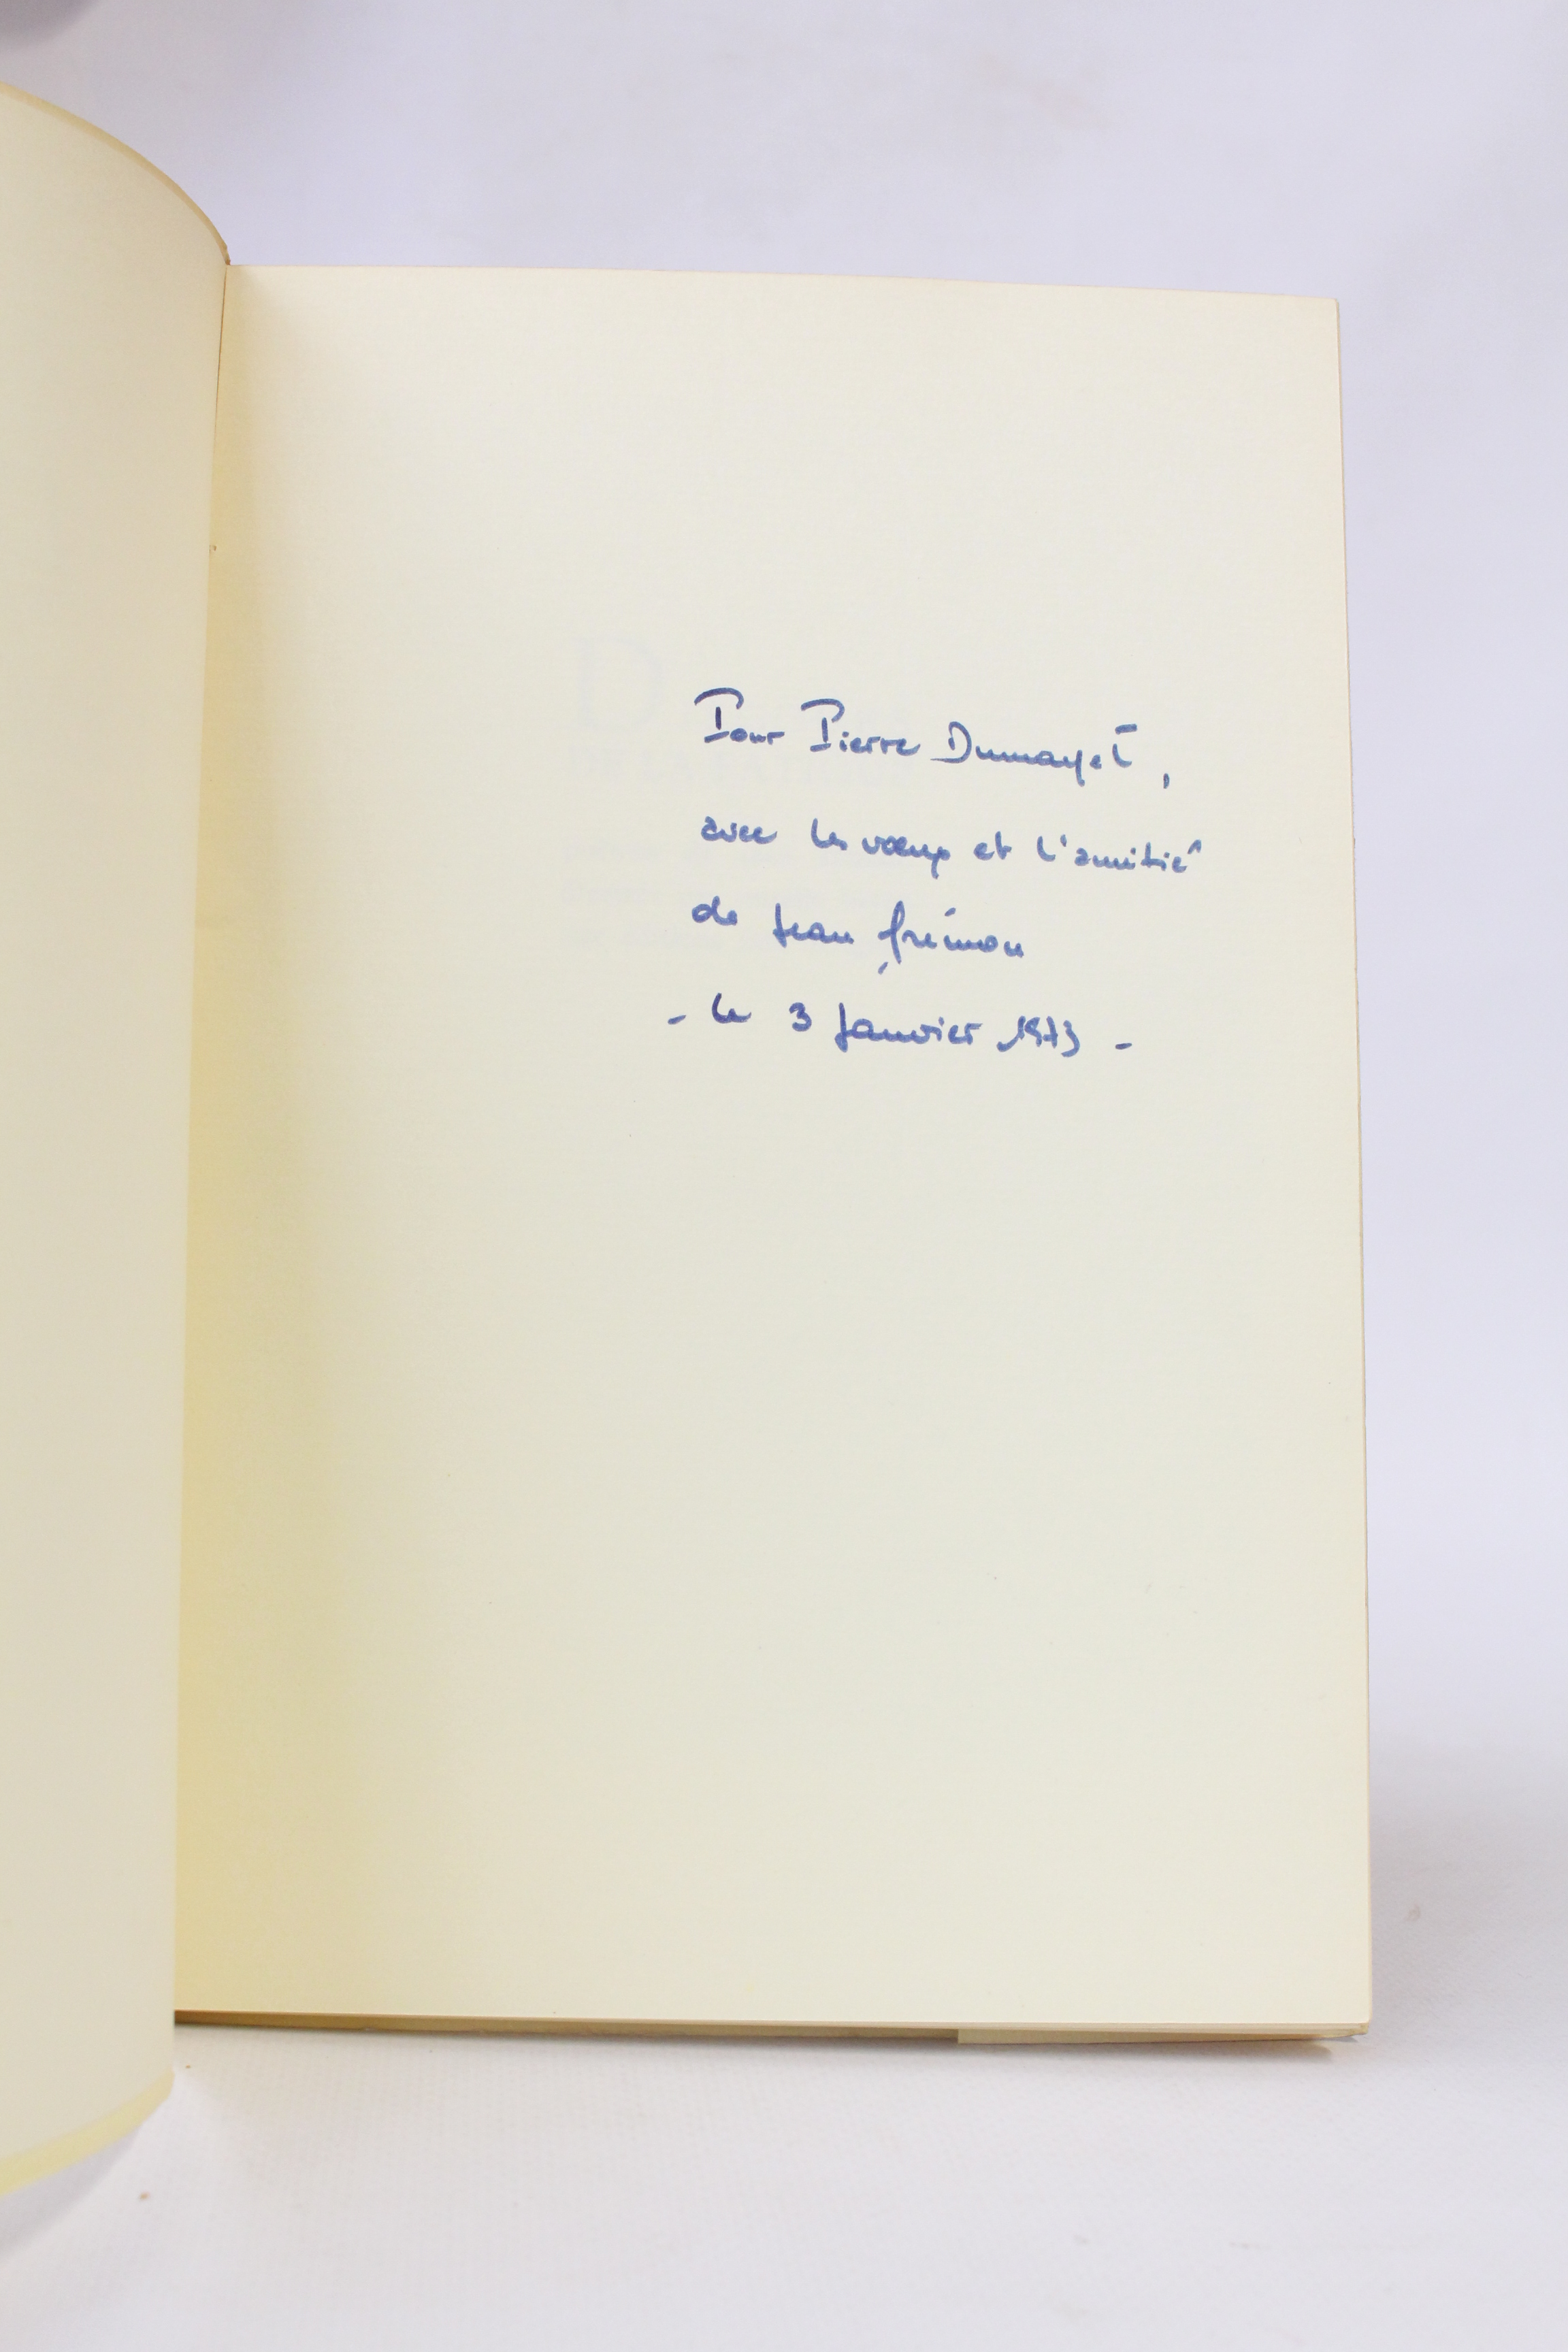 Pour Pierre Dumayet,
avec les vœux et l'amitié
de Jean Frémon
- le 3 Janvier 1973 -